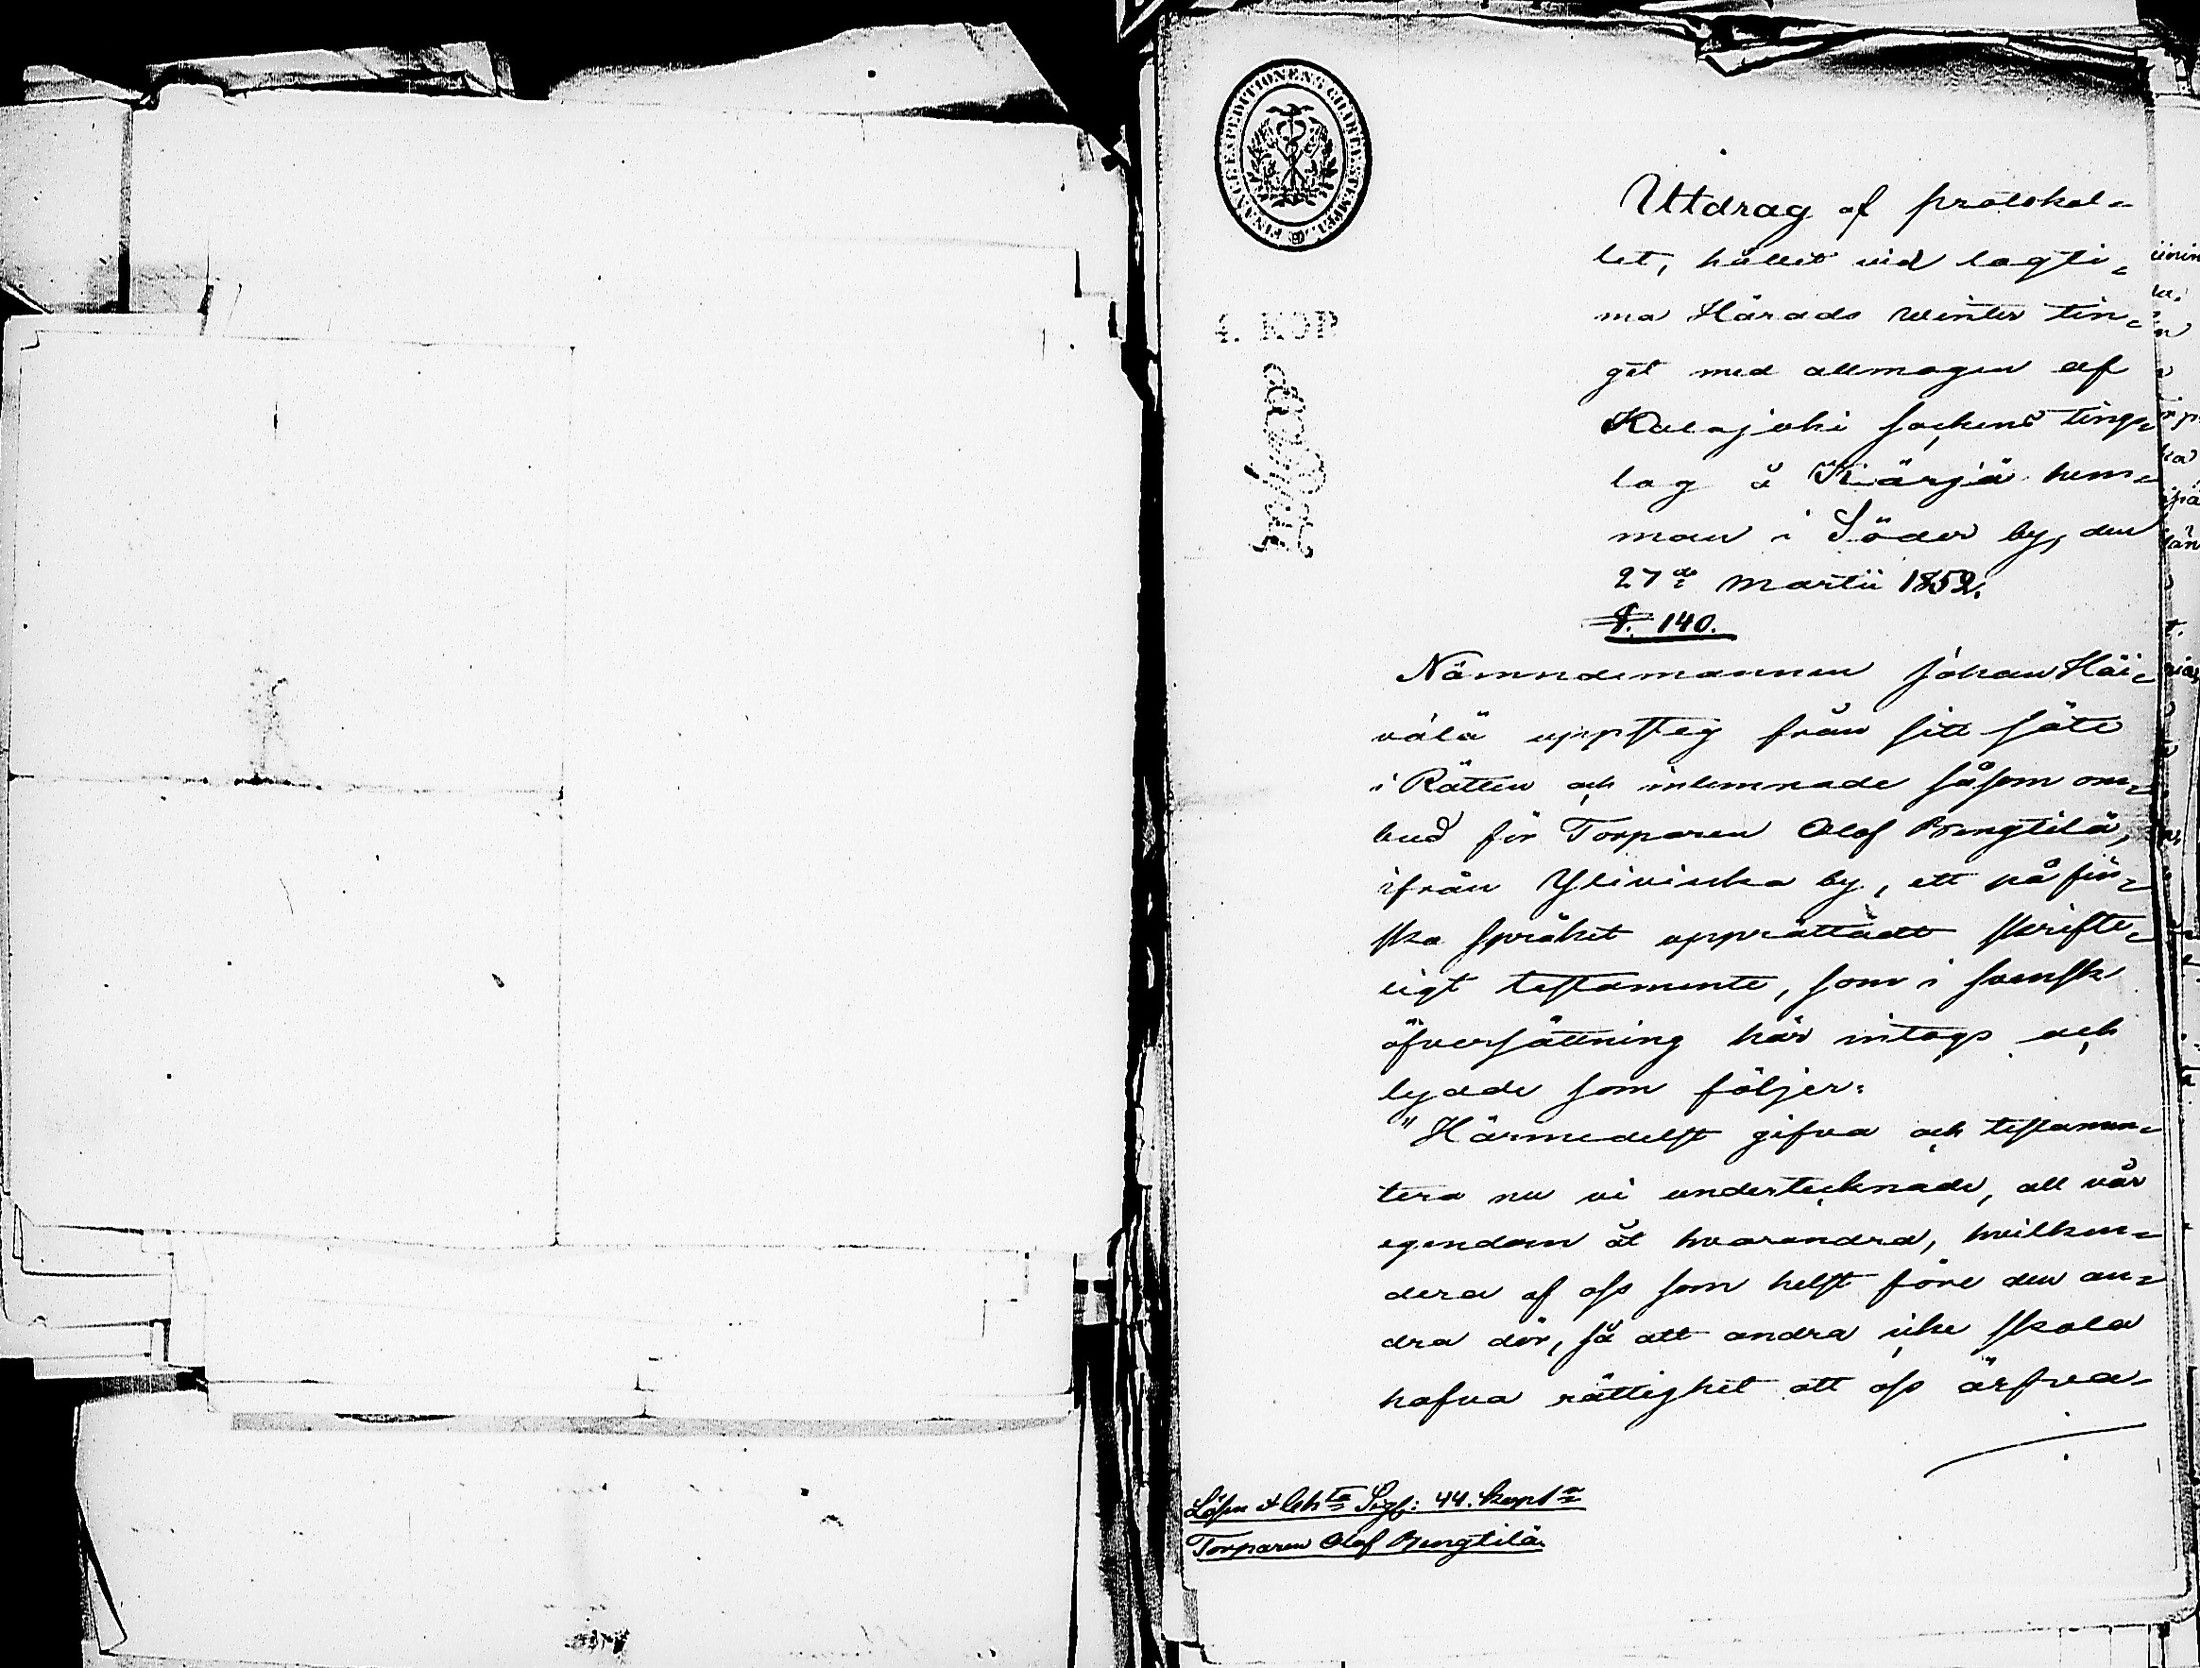 FINANCE EXPEDITIONENS CHARTÆ STEMPEL
4. KOP
Utdrag af protokol-
let, hållit vid lagti-
ma Härads Winter tin-
get med allmogen af
Kalajoki sockens tings-
lag å Kärjä hem-
man i Söder by, den
27de Martii 1852.
§. 140.
Nämndemannen Johan Häi-
välä uppsteg från sitt säte
i Rätten och inlemnade såsom om-
bud för Torparen Olof Bengtilä,
ifrån Ylivieska by, ett på fin-
ska språket upprättadt skrifte-
ligt testamente, som i svensk
öfversättning här intogs och
lydde som följer:
"Härmedelst gifva och testamen-
tera nu vi undertecknade, all vår
egendom åt hvarandra, hvilken-
dera af oss som helst före den an-
dra dör, så att andra icke skola
hafva rättighet att oss ärfva-
Lösen & Ch: Sigf: 44. kop
Torparen Olof Bengtilä.